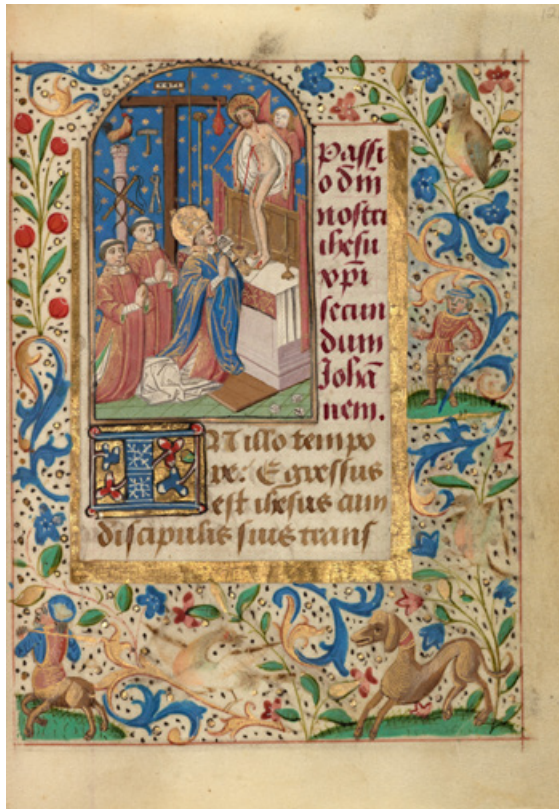 Passi
o dm̄
nostri
ihesu
xp̄i
secun
dum
Johā
nem.
IN illo tempo
re. Egressus
est ihesus cum
discipulis suis trans